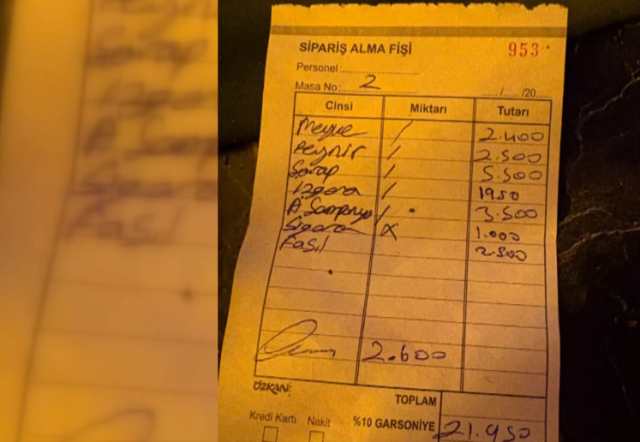 SİPARİŞ ALMA FİŞİ
953
Personel:
Masa No: 2
...../...../20
Cinsi Miktarı Tutarı
Meyve / 2.400
Peynir / 2.500
Şarap / 5.500
Izgara / 1950
A Şampanya / 3.500
Sigara X 1.000
Fasıl 2500
2.600
ÖZKAN
TOPLAM
Kredi Kartı Nakit %10 GARSONİYE 21.950